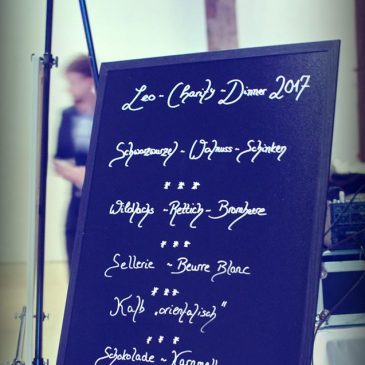 Leo - Charity - Dinner 2017
Schwarzwurzel - Walnuss - Schinken
* * *
Wildlachs - Rettich - Brombeere
* * *
Sellerie ~ Beurre Blanc
* * *
Kalb „orientalisch"
* * *
Schokolade ~ Karamell